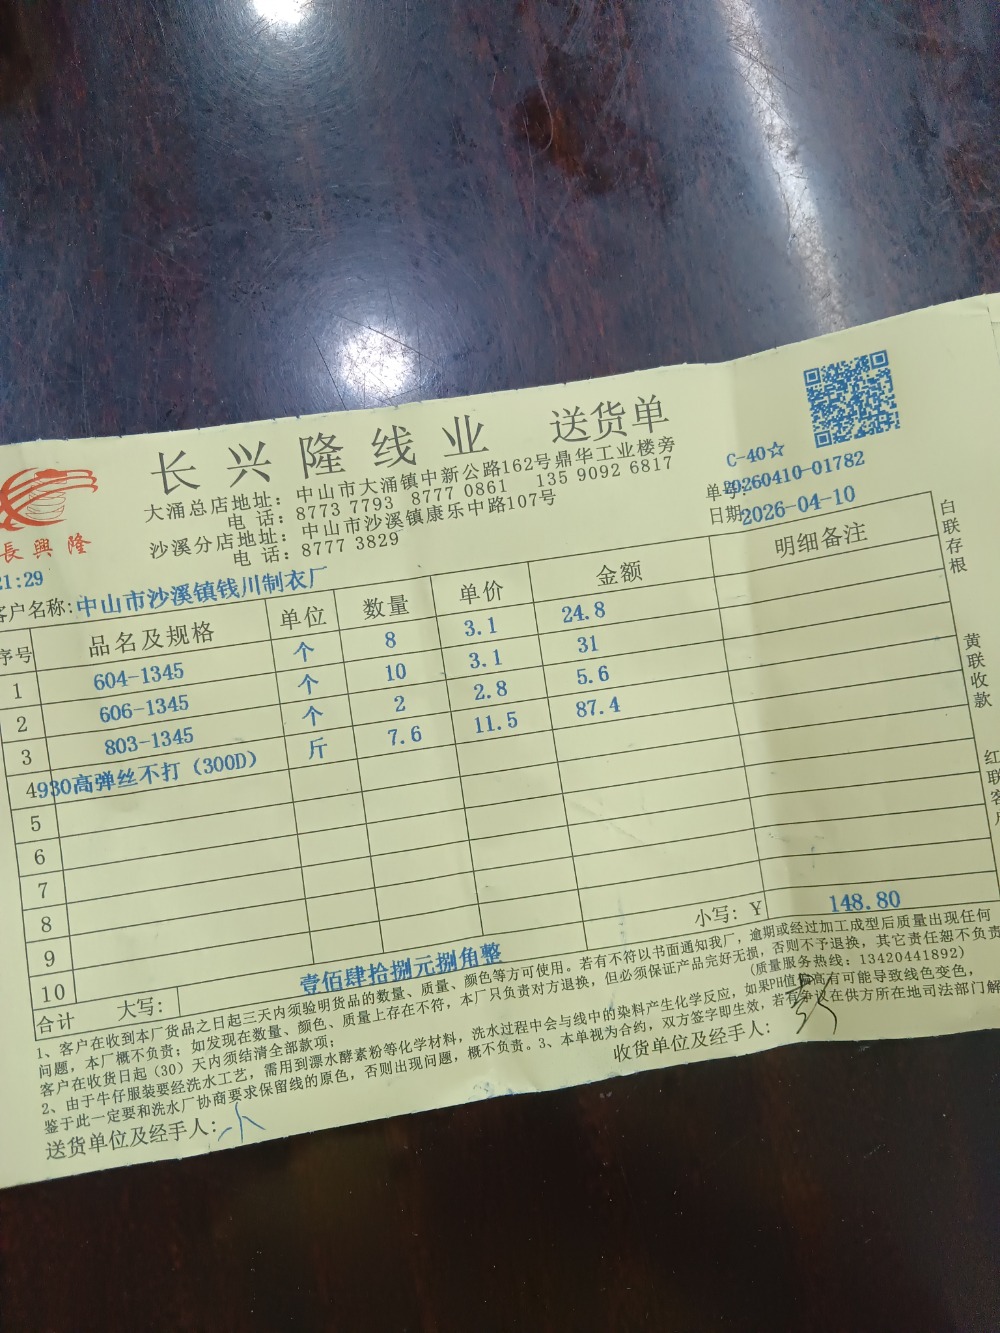 长兴隆线业 送货单
長興隆
大涌总店地址：中山市大涌镇中新公路162号鼎华工业楼旁
电 话：8773 7793 8777 0861 135 9092 6817
沙溪分店地址：中山市沙溪镇康乐中路107号
电 话：8777 3829
C-40☆
单号:20260410-01782
日期 2026-04-10
21:29
客户名称:中山市沙溪镇钱川制衣厂
序号 品名及规格 单位 数量 单价 金额 明细备注
1 604-1345 个 8 3.1 24.8
2 606-1345 个 10 3.1 31
3 803-1345 个 2 2.8 5.6
4 930高弹丝不打（300D） 斤 7.6 11.5 87.4
5
6
7
8
9
10
合计 大写：壹佰肆拾捌元捌角整 小写：¥ 148.80
1、客户在收到本厂货品之日起三天内须验明货品的数量、质量、颜色等方可使用。若有不符以书面通知我厂，逾期或经过加工成型后质量出现任何
问题，本厂概不负责；如发现在数量、颜色、质量上存在不符，本厂只负责对方退换，但必须保证产品完好无损，否则不予退换，其它责任恕不负责
客户在收货日起（30）天内须结清全部款项；(质量服务热线：13420441892)
2、由于牛仔服装要经洗水工艺，需用到漂水酵素粉等化学材料，洗水过程中会与线中的染料产生化学反应，如果PH值偏高有可能导致线色变色，
鉴于此一定要和洗水厂协商要求保留线的原色，否则出现问题，概不负责。3、本单视为合约，双方签字即生效，若有争议在供方所在地司法部门解
送货单位及经手人：小
收货单位及经手人：
白联存根
黄联收款
红联客